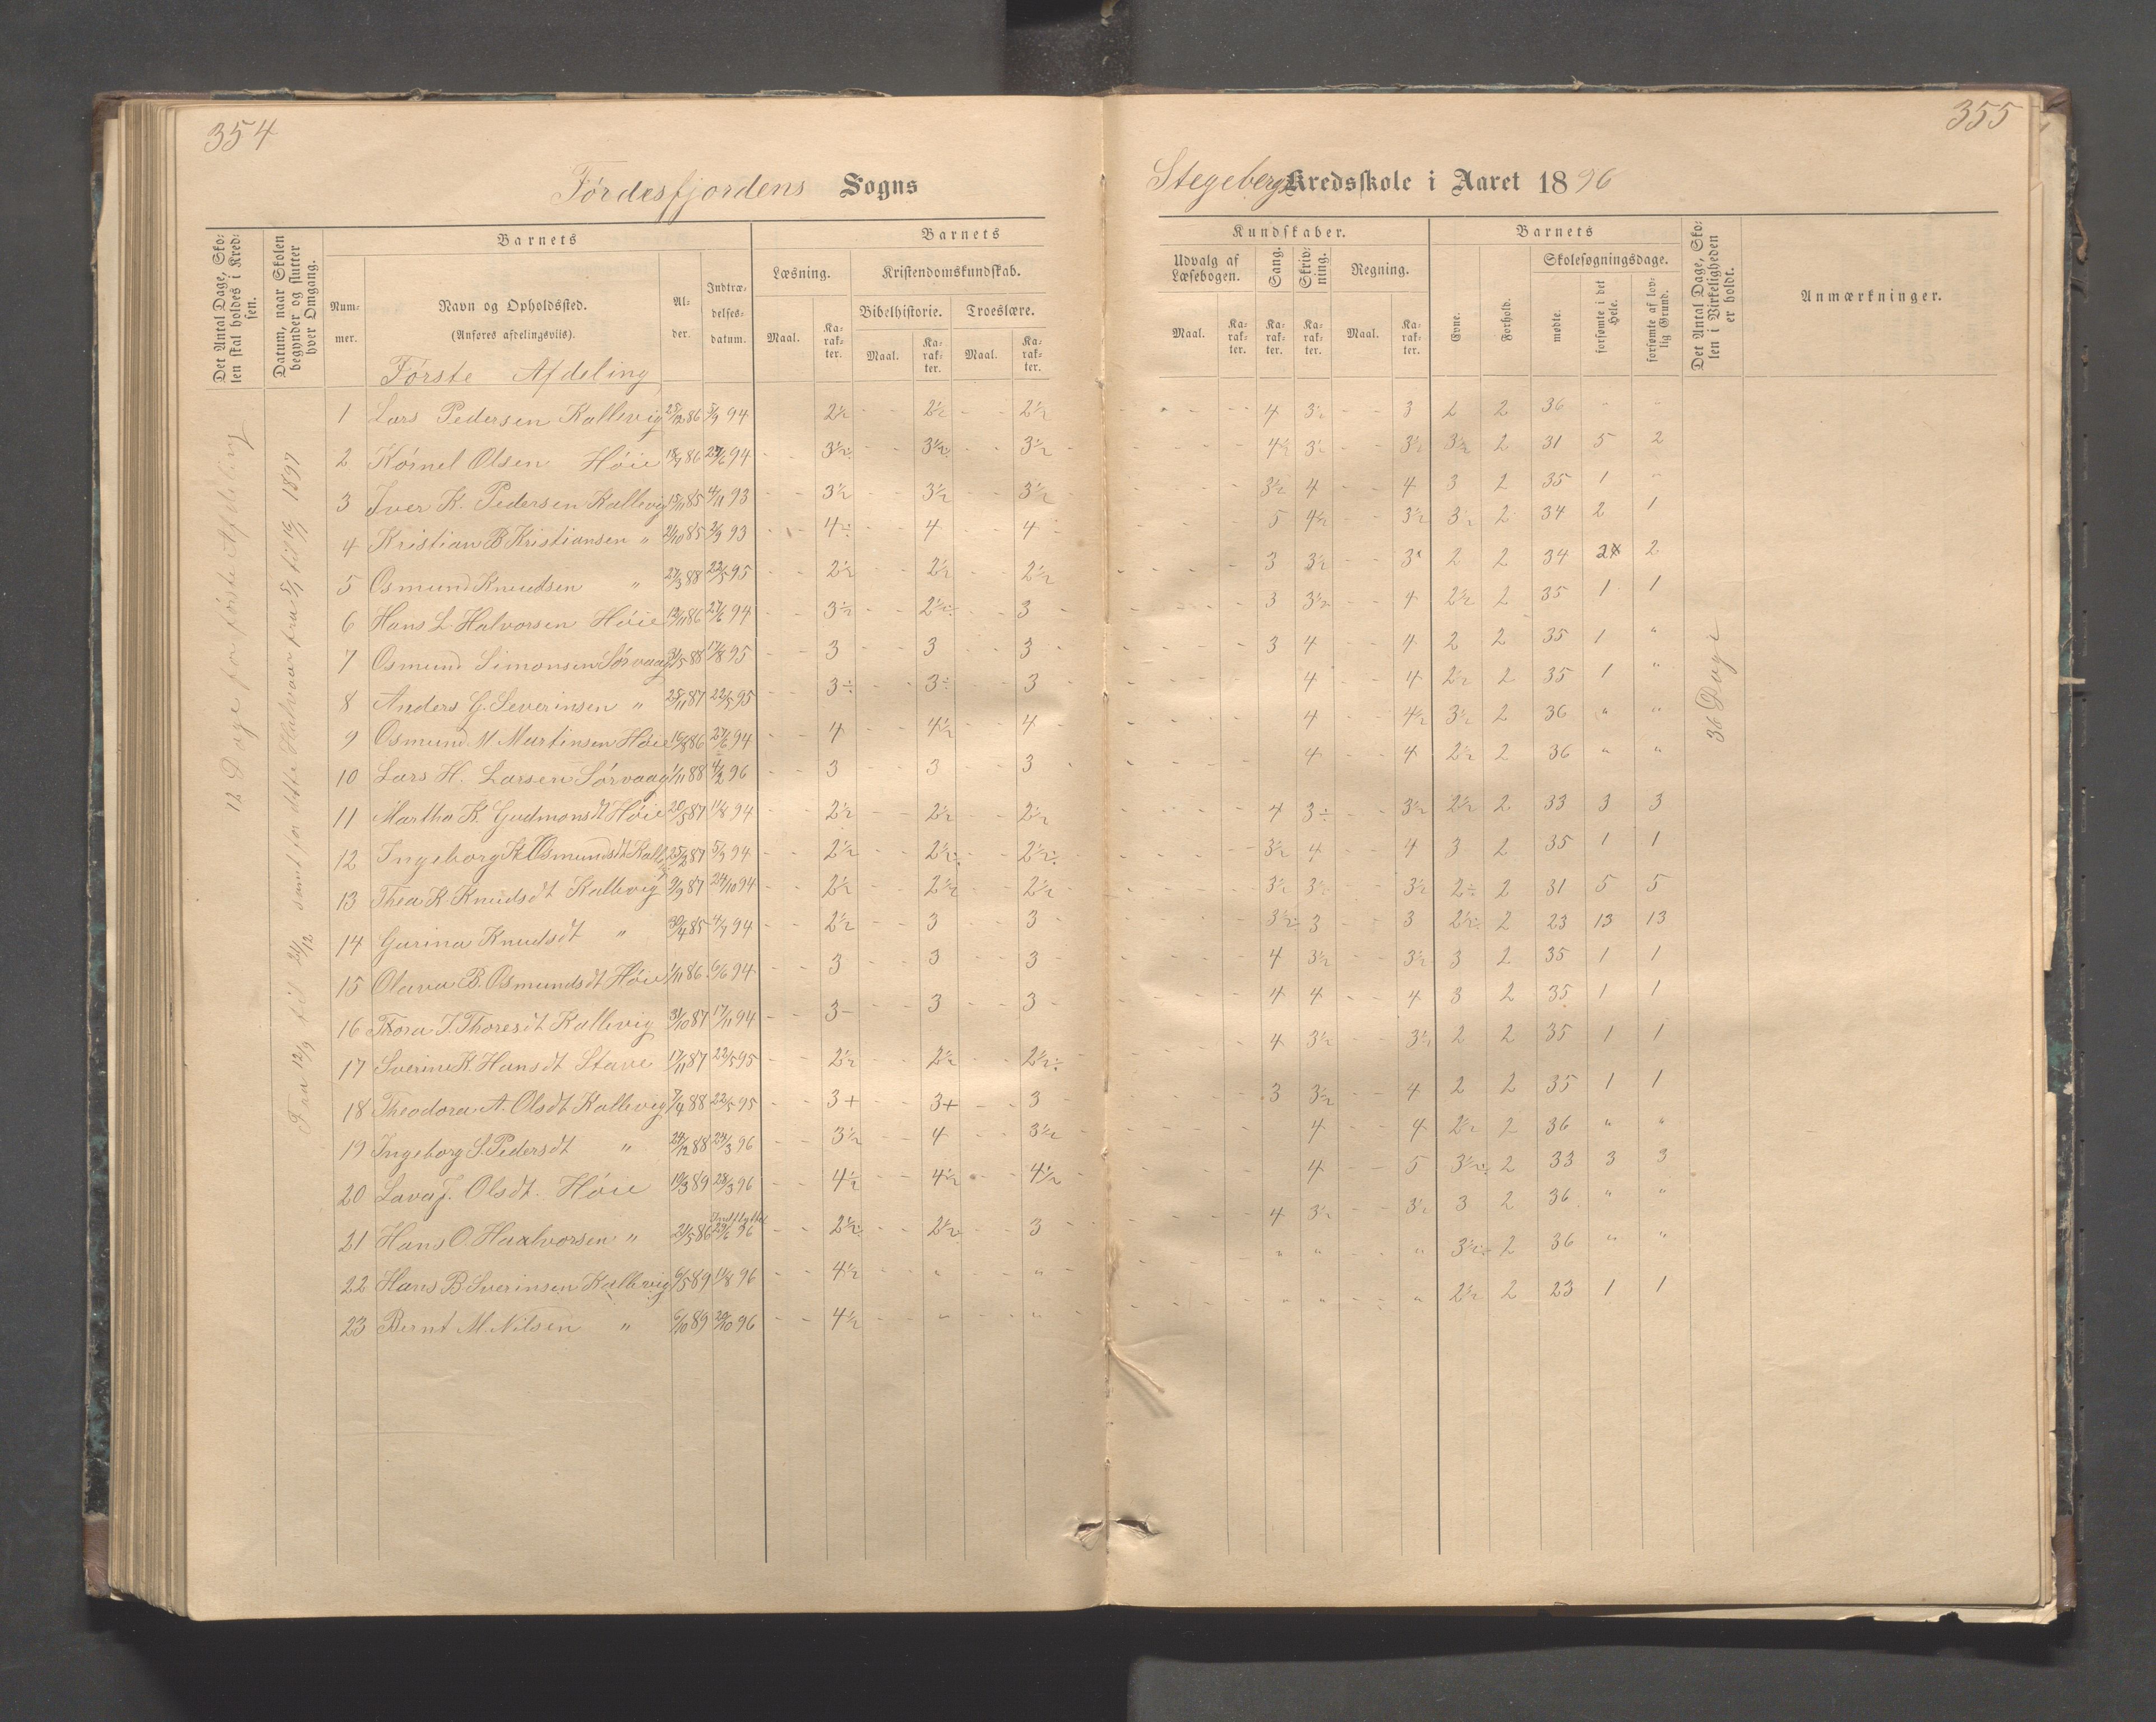 354
355
Førdesfjordens Sogns
Stegebergs Kredsskole i Aaret 1896
Det Antal Dage, Skolen skal holdes i Kredsen.
Datum, naar Skolen begynder og slutter hver Omgang.
Barnets
Nummer.
Navn og Opholdssted.
(Anføres afdelingsvis).
Alder.
Indtrædelsesdatum.
Barnets
Læsning.
Maal.
Karakter.
Kristendomskundskab.
Bibelhistorie.
Maal.
Karakter.
Troeslære.
Maal.
Karakter.
Kundskaber.
Udvalg af Læsebogen.
Maal.
Karakter.
Sang.
Karakter.
Skrivning.
Karakter.
Regning.
Maal.
Karakter.
Barnets
Evne.
Forhold.
Skolesøgningsdage.
mødte.
forsømte i det Hele.
forsømte af lovlig Grund.
Det Antal Dage, Skolen i Virkeligheden er holdt.
Anmærkninger.
Første Afdeling
1 Lars Pedersen Kallevig 25/12 86 5/9 94 - - 2½ - - 2½ - - 2½ - - - - 4 3½ - - 3 2 2 36 " "
2 Kornel Olsen Høie 18/9 86 27/6 94 - - 3½ - - 3½ - - 3½ - - - - 4½ 3½ - - 3½ 3½ 2 31 5 2
3 Iver K. Pedersen Kallevig 15/11 85 4/11 93 - - 3½ - - 3½ - - 3½ - - - - 3½ 4 - - 4 3 2 35 1 "
4 Kristian B Kristiansen " 21/10 85 2/9 93 - - 4÷ - - 4 - - 4 - - - - 5 4½ - - 3½ 3½ 2 34 2 1
5 Osmund Knudsen " 27/3 88 22/5 95 - - 2½ - - 2½ - - 2½ - - - - 3 3½ - - 3 2 2 34 2 2
6 Hans L. Halvorsen Høie 13/11 86 27/6 94 - - 3½ - - 2½ - - 3 - - - - 3 3½ - - 4 2½ 2 35 1 1
7 Osmund Simonsen Sørvaag 31/5 88 17/8 95 - - 3 - - 3 - - 3 - - - - 3 4 - - 4 2 2 35 1 "
8 Anders G. Severinsen " 28/11 87 22/5 95 - - 3÷ - - 3÷ - - 3 - - - - 4 - - 4 2½ 2 35 1 "
9 Osmund M Martinsen Høie 16/8 86 27/6 94 - - 4 - - 4½ - - 4 - - - - 4 - - 4½ 3½ 2 36 " "
10 Lars H. Larsen Sørvaag 1/11 88 4/2 96 - - 3 - - 3 - - 3 - - - - 4 - - 4 2½ 2 36 " "
11 Martha K. Gudmonsdt Høie 20/5 87 11/8 94 - - 2½ - - 2½ - - 2½ - - - - 4 3÷ - - 3½ 2½ 2 33 3 3
12 Ingeborg K Osmundsdt Kallevig 25/2 87 5/9 94 - - 2½ - - 2½ - - 2½ - - - - 3½ 4 - - 4 3 2 35 1 1
13 Thea K. Knudsdt Kallevig 9/9 87 24/10 94 - - 2½ - - 2½ - - 2½ - - - - 3½ 3½ - - 3½ 2÷ 2 31 5 5
14 Gurina Knudsdt " 30/4 85 4/7 94 - - 2½ - - 3 - - 3 - - - - 3½ 3 - - 3 2½ 2 23 13 13
15 Olava B. Osmundsdt Høie 1/11 86 6/6 94 - - 3 - - 3 - - 3 - - - - 4 3½ - - 3½ 3 2 35 1 1
16 Thora T. Thoresdt Kallevig 31/10 87 17/11 94 - - 3 - - 3 - - 3 - - - - 4 4 - - 4 3 2 35 1 1
17 Sverine K. Hansdt Stave 17/11 87 22/5 95 - - 2½ - - 2½ - - 2½÷ - - - - 4 3½ - - 3½ 2 2 35 1 1
18 Theodora A. Olsdt Kallevig 7/4 88 22/5 95 - - 3+ - - 3+ - - 3 - - - - 3 3½ - - 4 2 2 35 1 1
19 Ingeborg S. Pedersdt " 24/12 88 24/3 96 - - 3½ - - 4 - - 3½ - - - - 4 - - 4 2½ 2 36 " "
20 Lava J. Olsdt. Høie 19/3 89 28/3 96 - - 4½ - - 4½ - - 4½ - - - - 4 - - 5 3½ 2 33 3 3
21 Hans O. Haalvorsen " 21/5 86 Indflyttet 29/6 96 - - 2½ - - 2½ - - 3 - - - - 4 3½ - - 3½ 3 2 36 " "
22 Hans B. Sverinsen Kallevig 6/5 89 11/8 96 - - 4½ - - " - - " - - - - " " - - " 3½ 2 36 " "
23 Bernt M. Nilsen " 6/10 89 20/10 96 - - 4½ - - " - - " - - - - " " - - " 2½ 2 23 1 1
12 Dage for første Afdeling
Fra 12/9 til 21/12 samt for dette Halvaar fra 5/1 til 16/1 1897
36 Dage